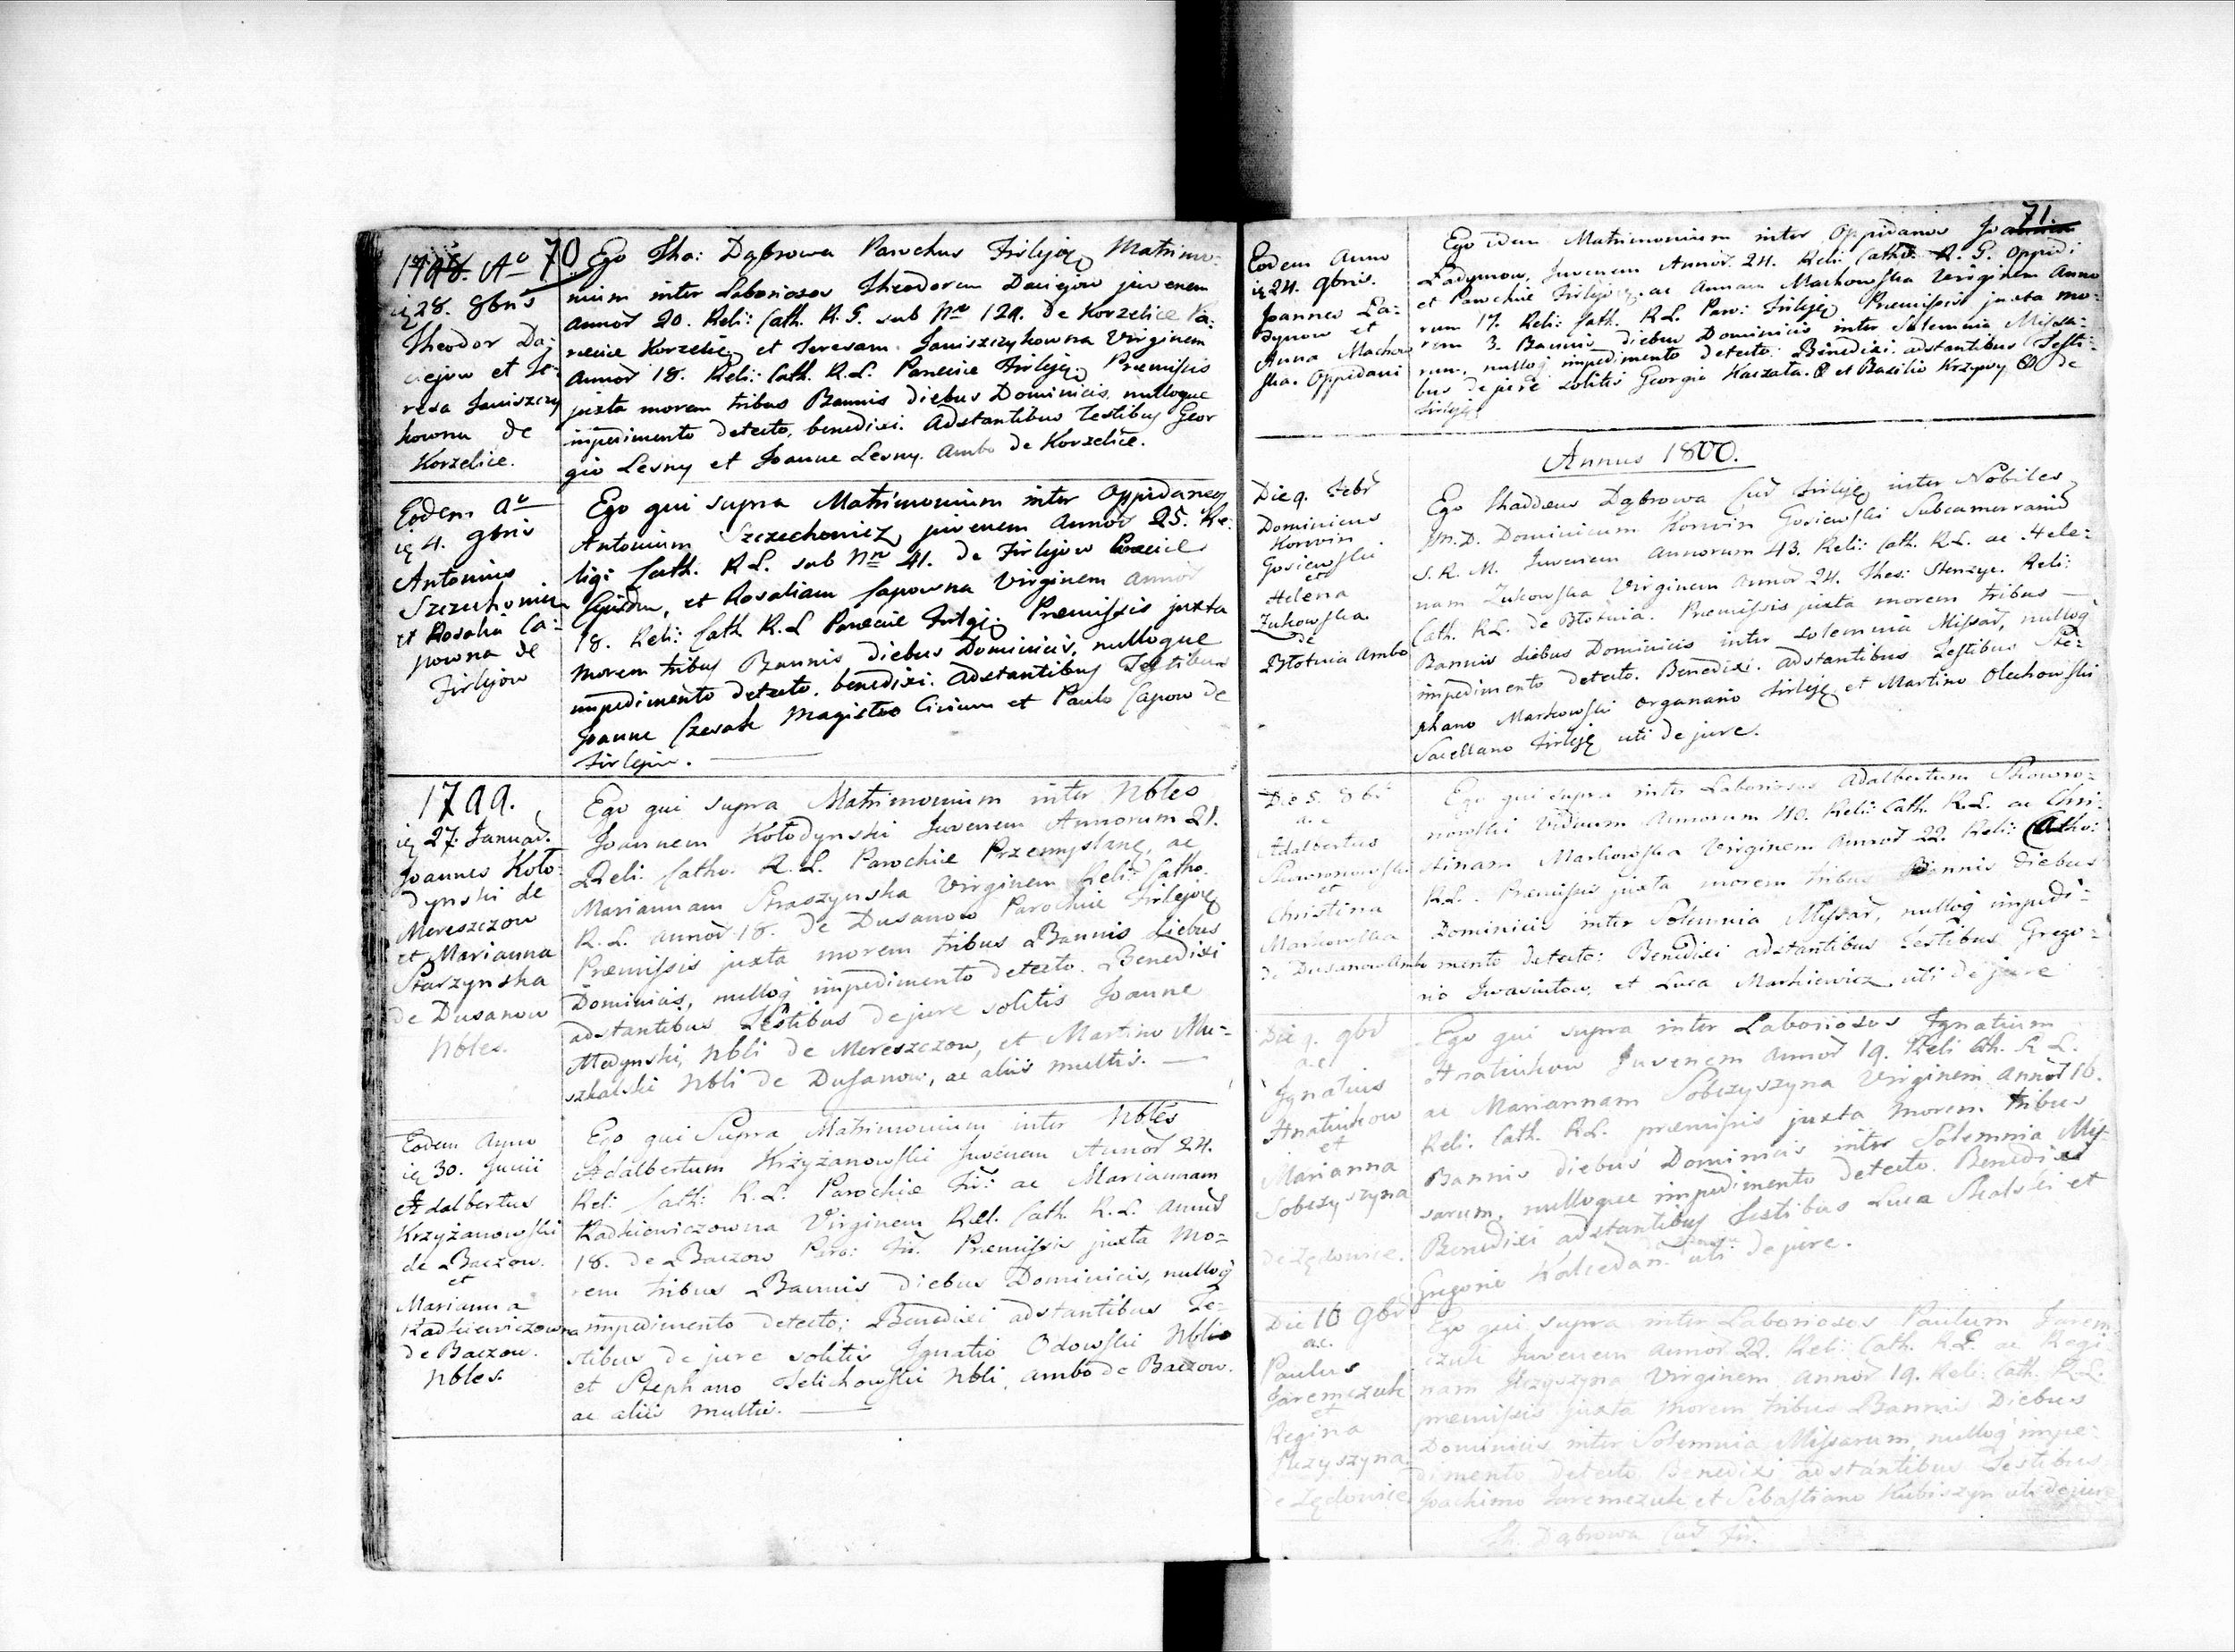 70
1798. Aº
28. 8bris
Theodor Da-
ciejow et Te-
resa Janiszczy
kowna de
Korzelice.
Ego Tha: Dąbrowa Parochus Firlejoę Matrimo-
nium inter Laboriosos Theodorum Daciejow juvenem
Annor 20. Reli: Cath. R. G. sub Nro 129. de Korzelice Pa-
reciæ Korzelię et Teresam Janiszczykowna Virginem
Annor 18. Reli: Cath. R.L. Pareciæ Firleję Præmissis
juxta morem tribus Bannis diebus Dominicis, nulloque
impedimento detecto, benedixi. Adstantibus Testibus Geor
gio Lesny et Joanne Lesny. Ambo de Korzelice.
Eodem Aº
4. 9bris
Antonius
Szczechowicz
et Rosalia Ca-
powna de
Firlejow
Ego qui supra Matrimonium inter Oppidaneos
Antonium Szczechowicz juvenem Annor 25. Re-
ligi Cath. R L. sub Nro 41. de Firlejow Pareciæ
Ejusdem, et Rosaliam Capowna Virginem Annor
18. Reli: Cath R.L Pareciæ Firlej: Præmissis juxta
morem tribus Bannis diebus Dominicis, nulloque
impedimento detecto. benedixi. Adstantibus Testibus
Joanne Czesak Magistro Civium et Paulo Capow de
Firlejow.
1799.
27. Januar.
Joannes Koło-
dynski de
Mereszczow
et Marianna
Starzynska
de Dusanow
Nbles.
Ego qui supra Matrimonium inter Nbles
Joannem Kołodynski Juvenem Annorum 21.
Reli: Catho. R.L. Parochiæ Przemyslanę, ac
Mariannam Straszynska Virginem Reli: Catho.
R.L. Annor 18. de Dusanow Parochiæ Firlejoę
Præmissis juxta morem tribus Bannis diebus
Dominicis, nulloq impedimento detecto. Benedixi
adstantibus Testibus de jure solitis Joanne
Medynski, Nbli de Mereszczow, et Martino Mu-
szkalski Nbli de Dusanow, ac aliis multis.
Eodem Anno
30. Junii
Adalbertus
Krzyżanowski
de Baczow.
et
Marianna
Radkiewiczowna
de Baczow.
Nbles.
Ego qui Supra Matrimonium inter Nbles
Adalbertum Krzyżanowski Juvenem Annor 24.
Reli: Cath: R.L. Parochiæ Fir: ac Mariannam
Radkiewiczowna Virginem Rel. Cath. R.L. Annor
18. de Baczow Paro: Fir. Præmissis juxta Mo-
rem tribus Bannis diebus Dominicis, nulloq
impedimento detecto; Benedixi adstantibus Te-
stibus de jure solitis Ignatio Odowski Nbli
et Stephano Telichowski Nbli, ambo de Baczow.
ac aliis multis.
71.
Eodem Anno
24. 9bris.
Joannes La-
dynow et
Anna Machow
ska. Oppidani
Ego idem Matrimonium inter Oppidanos
Ladynow, Juvenem Annor. 24. Reli: Catho. R. G. Oppidi
et Parochiæ Firlejoę, ac Annam Machowska Virginem Anno
rum 17. Reli: Cath. R.L. Paro: Firleję Præmissis juxta mo-
rem 3. Bannis diebus Dominicis inter Solemnia Missa-
rum, nulloq impedimento detecto: Benedixi. adstantibus Testi-
bus de jure solitis Georgio Kaczała. et Basilio Krzywy de
Firleję
Annus 1800.
Die 9. Febr
Dominicus
Korwin
Gosiewski
et
Helena
Zukowska
de
Błotnia Ambo
Ego Thaddæus Dąbrowa Cur Firleję inter Nobiles
M.D. Dominicum Korwin Gosiewski Subcamerarium
S. R. M. Juvenem Annorum 43. Reli: Cath. R.L. ac Hele-
nam Zukowska Virginem Annor 24. Reli:
Cath. R.L. de Błotnia. Præmissis juxta morem tribus
Bannis diebus Dominicis inter Solemnia Missar, nulloq
impedimento detecto. Benedixi. adstantibus Testibus Ste-
phano Markowski Organario Firleję et Martino Olechowski
Sacellano Firleję uti de jure.
Die 5. 8br
a.c
Adalbertus
Skowronowski
et
Christina
Markowska
de Dusanow Ambo
Ego qui supra inter Laboriosos Adalbertum Skowro-
nowski Viduum Annorum 40. Reli: Cath. R.L. ac Chri-
stinam Markowska Virginem Annor 22. Reli: Catho:
R.L. Præmissis juxta morem tribus Bannis diebus
Dominicis inter Solemnia Missar, nulloq impedi-
mento detecto: Benedixi adstantibus Testibus Grego-
rio Iwasiutow, et Luca Markiewicz uti de jure
Die 9. 9br
a.c
Ignatius
Hnatiukow
et
Marianna
Sobczyszyna
de Zędowice.
Ego qui supra inter Laboriosos Ignatium
Hnatiukow Juvenem Annor 19. Reli Cath. R L.
ac Mariannam Sobczyszyna Virginem Annor 16.
Reli: Cath. R.L. præmissis juxta morem tribus
Bannis diebus Dominicis inter Solemnia Mis-
sarum, nulloque impedimento detecto. Benedixi
Benedixi adstantibus Testibus Luca Skalski et
Gregorio uti de jure.
Die 16 9br
a.c.
Paulus
Jaremczuk
et
Regina
de Zędowice
Ego qui supra inter Laboriosos Paulum Jarem-
czuk Juvenem Annor 22. Reli: Cath. R.L. ac Regi-
nam Virginem Annor 19. Reli: Cath. R.L.
præmissis juxta morem tribus Bannis Diebus
Dominicis inter Solemnia Missarum, nulloq impe-
dimento detecto Benedixi adstantibus Testibus
Joachimo Jaremczuk et Sebastiano Kubiszyn uti de jure
Th. Dąbrowa Cur Fir.